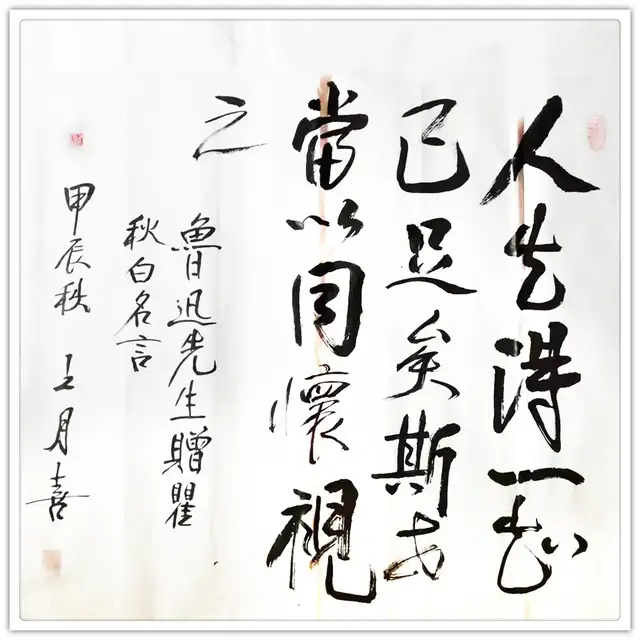 人生得一知
己足矣斯世
當以同懷視
之
魯迅先生贈瞿
秋白名言
甲辰秋 王月喜